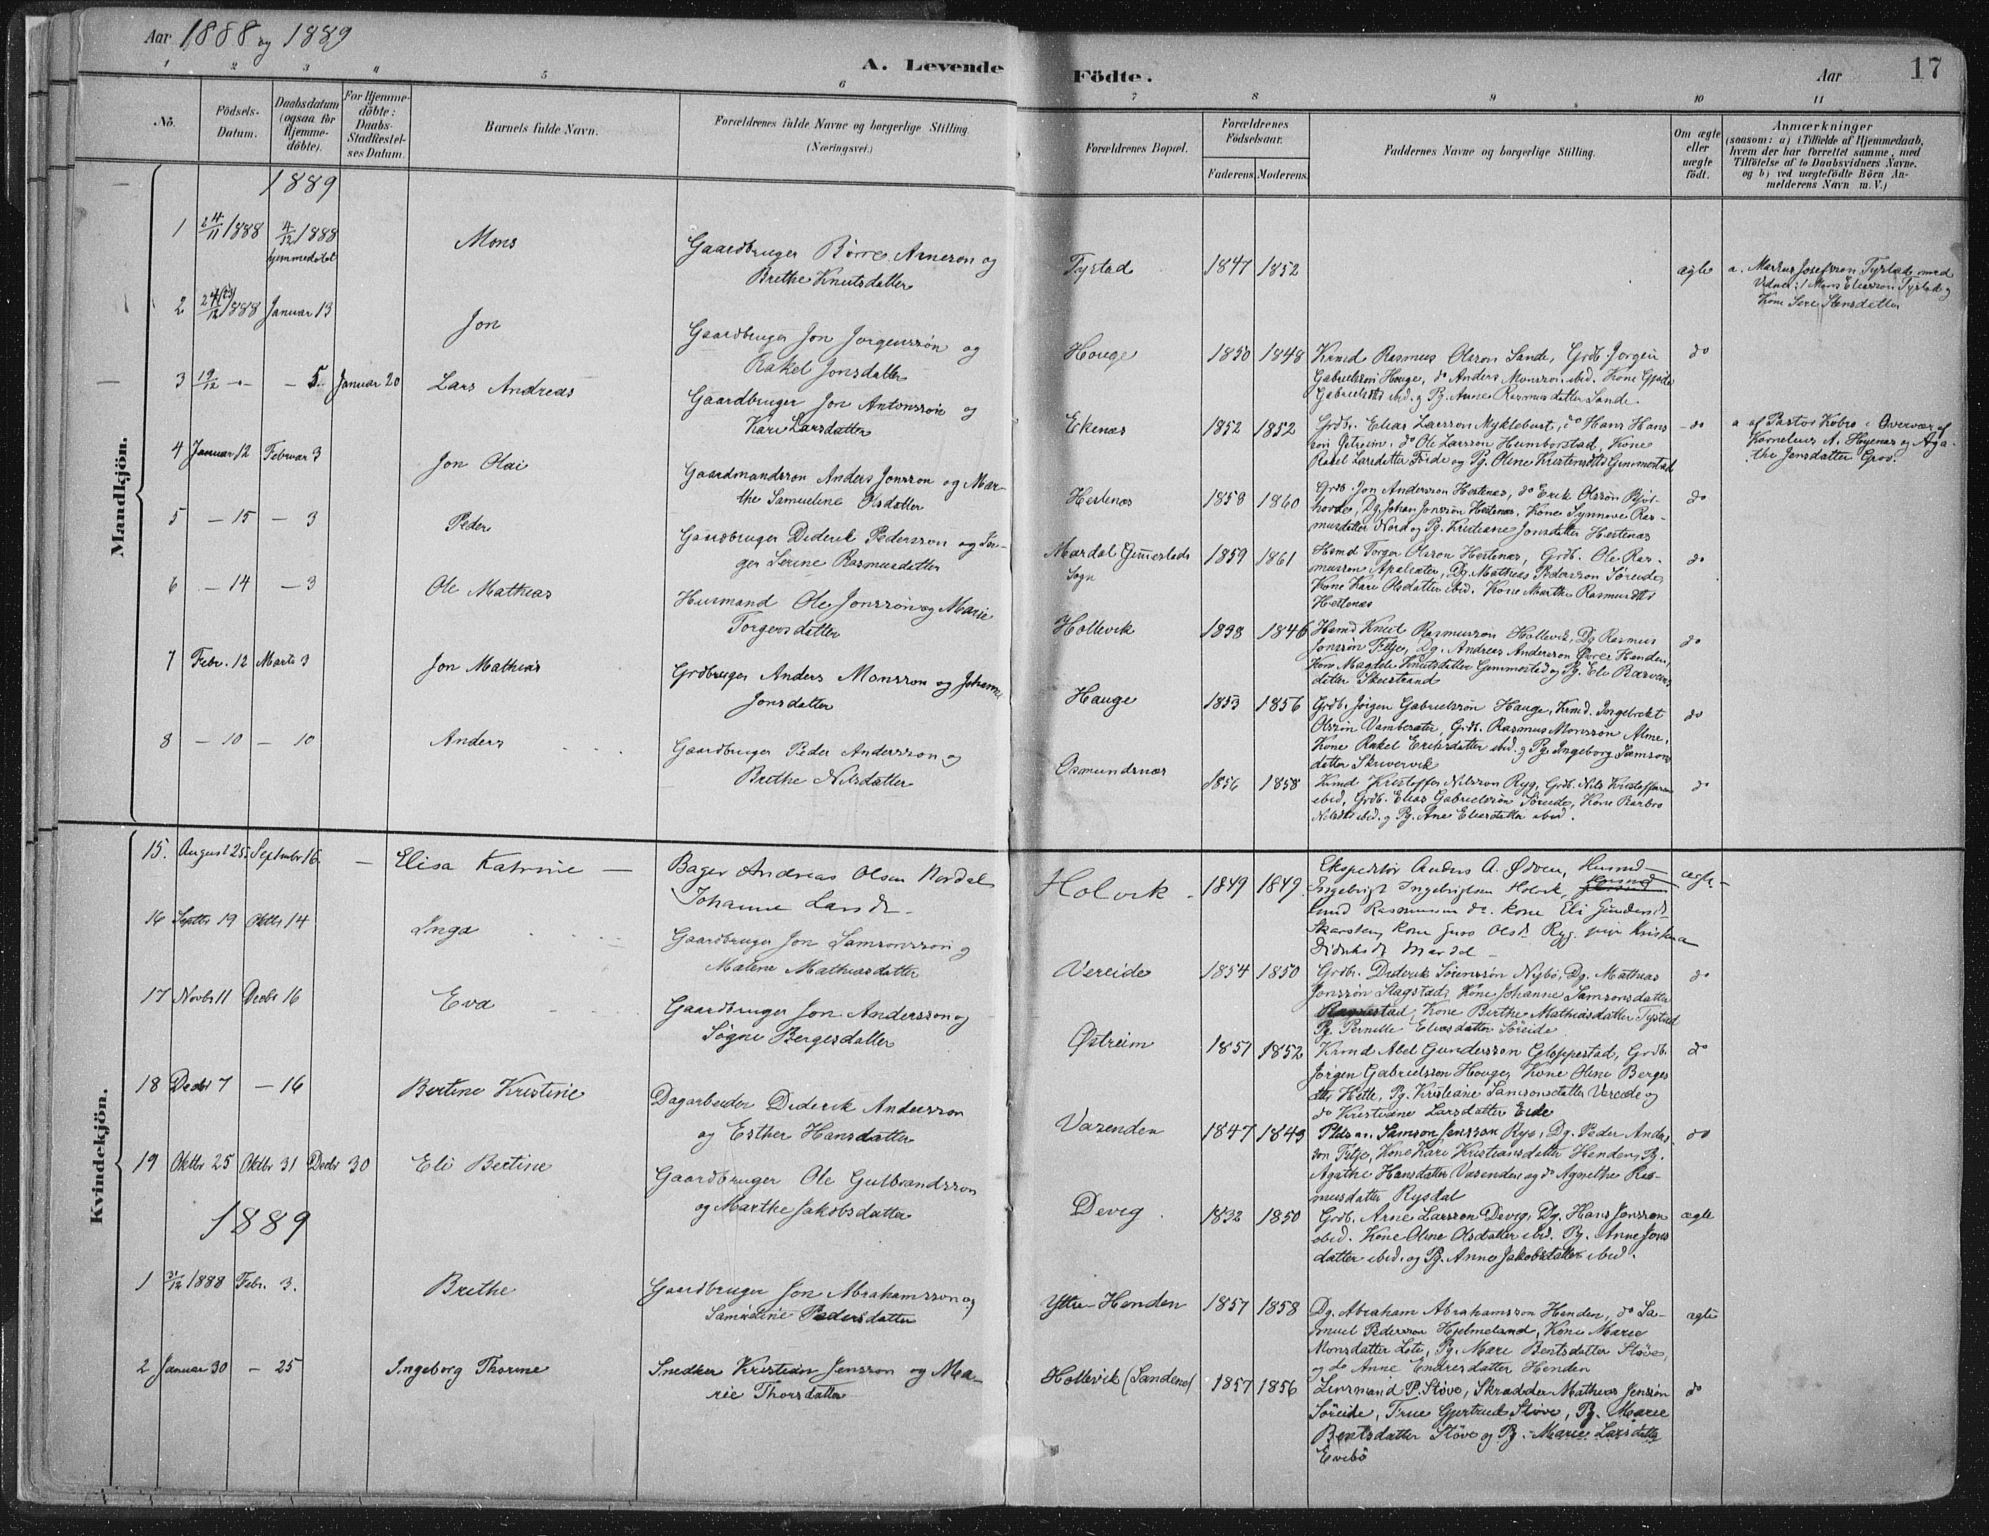 Aar 1888 og 1889
A. Levende Fødte.
Aar
17
1 2 3 4 5 6 7 8 9 10 11
No.
Födsels-Datum.
Daabsdatum (ogsaa for Hjemme-döbte).
For Hjemme-döbte: Daabs-Stadfæstel-ses Datum.
Barnets fulde Navn.
Forældrenes fulde Navne og borgerlige Stilling. (Næringsvei.)
Forældrenes Bopæl.
Forældrenes Födselsaar.
Faderens. Moderens.
Faddernes Navne og borgerlige Stilling.
Om ægte eller uægte födt.
Anmærkninger
(saasom: a) i Tilfælde af Hjemmedaab,
hvem der har forrettet samme, med
Tilföielse af to Daabsvidners Navne.
og b) ved uægtefödte Börn An-
melderens Navn m. V.)
Mandkjön.
1889
1 24/11 1888 4/12 1888 hjemmedøbt Mons
Gaardbruger Børre Arneson og
Brethe Knutsdatter
Tystad 1847 1852 ægte
a. Markus Josefsson Tystad med
Vidner: Mons Eliasson Tystad og
Kone Sere Stensdatter
2 1888 Januar 13 Jon
Gaardbruger Jon Jorgenssön og
Rakel Jonsdatter
Houge 1850 1848
Krmd Rasmus Olsson Sande, Grdb. Jorgen
Gabrielsson Houge, do Anders Monsson ibid. Kone
ibid. og Pg. Anne Rasmusdatter Sande.
do
3 19/12 — — 5. Januar 20 Lars Andreas
Gaardbruger Jon Antonsson og
Kari Larsdatter
Ekenæs 1852 1852
Grdb. Elias Larsson Myklebust, do Hans Hans-
son do Ole Larsson Humborstad, Kone
Rakel Larsdatter og Pg. Oline Gimmestad
do
a af Pastor Kobro i Overvær af
Kornelius A. Høyenæs og Aga-
the Jensdatter Grov.
4 Januar 12 Februar 3 Jon Olai
Gaardmandsson Anders Jonsson og Mar-
the Samueline Olsdatter
Hestenæs 1858 1860
Grdb. Jon Andersson Hestenæs, do Erik Olssön
Dg. Johan Jonssön Hestenæs. Kone Synneve Ras-
musdatter Nord og Pg. Kristiane Jonsdatter Hestenæs
do
5 — 15 — 3 Peder
Gaardbruger Diderik Pedersson og In-
ger Serine Rasmusdatter
Mardal Gimmestads
Sogn
1859 1861
Hsmd Torger Olsson Hestenæs, Grdb. Ole Ras-
musson Apalsæter, Dg. Mathias Pedersson Søreide,
Kone Kari Olsdatter ibid. Kone Marthe
Hestenæs
do
6 — 14 — 3 Ole Mathias
Husmand Ole Jonssön og Marie
Torgersdatter
Hollevik 1838 1846
Hsmd Knut Rasmusson Hollevik, Dg Rasmus
Jonssön Felje, Dg. Andreas Andersson Øvre Henden,
Kone Magdele Knutsdatter Gimmestad og Pg. Eli
datter
do
7 Febr. 12 Marts 3 Jon Mathias
Grdbruger Anders Monsson og Johanne
Jonsdatter
Hauge 1853 1856
Grdb. Jörgen Gabrielssön Hauge, Krmd. Ingebrekt
Olssön Vambesæter, Grdb. Rasmus Monssön Alme,
Kone Rakel Eriksdatter ibid. og Pg. Ingeborg Samson-
datter Skivervik
do
8 — 10 — 10 Anders
Gaardbruger Peder Andersson og
Brethe Nilsdatter
Osmundsnæs 1856 1858
Krmd Kristoffer Nilsson Ryg, Grdb. Nils Kristofferson
ibid, Grdb. Elias Gabrielssön Söreide, Kone Barbro
ibid. og Pg. Ane Eliasdatter ibid.
do
Kvindekjön.
15. August 25. Septmbr 16. — Elisa Katrine —
Bager Andreas Olsen Nordal
Johanne
Holvik. 1849 1849.
Ekspeditør Anders A. Husmd —
Engebrigt Ingebrigtsen Holvik,
Rasmussen do. kone Eli
kone Ryg. pige
Mardal —
ægte —
16 Septbr 19 Oktbr 14 Inga
Gaardbruger Jon Samsonsson og
Malene Mathiasdatter
Vereide 1854 1850
Grdb. Diderik Sörenssön Nybö, Dg. Mathias
Jonssön Stagstad, Kone Johanne Samsonsdatter
Kone Birthe Mathiasdatter Tystad
Pg. Pernille Eliasdatter Söreide.
do
17 Novbr 11 Decbr 16 Eva
Gaardbruger Jon Andersson og
Søgni Bergesdatter
Østreim 1857 1852
Krmd Abel Gundersson Gloppestad, Grdb.
Jörgen Gabrielsson Houge, Kone Oline Berges
Hette, Pg. Kristiane Samsonsdatter Vereide og
do Kristiane Larsdatter Eide
do
18 Decbr 7 — 16 Bertine Kristine
Dagarbeider Diderik Andersson
og Esther Hansdatter
Vasenden 1847 1849
Samson Jensson Rys, Dg. Peder Anders
son Felje, Kone Kari Kristiansdatter Henden, Pg.
Agathe Hansdatter Vasenden og do Agnethe Ras-
musdatter Rysdal
do
19 Oktbr 25 Oktbr 31 Decbr 30 Eli Bertine
Gaardbruger Ole Gulbrandsson
og Marthe Jakobsdatter
Devig 1832 1850
Grdb. Arne Larsson Devig, Dg. Hans Jonsson
ibid. Kone Oline Olsdatter ibid. Pg. Anne Jons
datter ibid. og Pg. Anne Jakobsdatter ibid.
ægte
1889
1 31/12 1888 Febr. 3. Brethe
Gaardbruger Jon Abrahamsson og
Samueline Pedersdatter
Ytre Henden 1857 1858
Dg. Abraham Abrahamsson Henden, do Sa-
muel Pedersson Hjelmeland, Kone Marie
Monsdatter Lote, Pg. Mari Bentsdatter Støve,
og do Anne Endresdatter Henden
ægte
2 Januar 30 — 25 Ingeborg Thorine
Snedker Kristian Jensson og Ma-
rie Thorsdatter
Hollevik (Sandene) 1857 1856
Linsmand P. Støve, Skrædder Mathias Jenssön
Söreide, Frue Gjertrud Støve, Pg. Marie
Bentsdatter Støve og Pg. Marie Larsdatter
Evebö
do